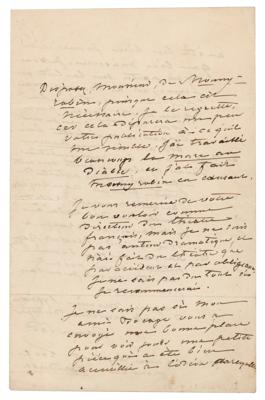 Disposez, Monsieur, de Mouny-
robin, puisque cela est
nécessaire. Je le regrette,
car cela déparera un peu
votre publication à ce qu'il
me semble. J'ai travaillé
beaucoup la mare au
Diable, et j'ai fait
mouny robin en causant.
Je vous remercie de votre
bon vouloir comme
Directeur du théâtre
français, mais je ne suis
pas auteur dramatique. Je
n'ai fait du théâtre que
par accident et pas obligeance
je ne sais pas du tout si
je recommencerai.
Je ne sais pas si mon
ami Bocage vous a
envoyé une bonne place
pour voir jouer une petite
pièce qui a été bien
accueillie à l'odéon